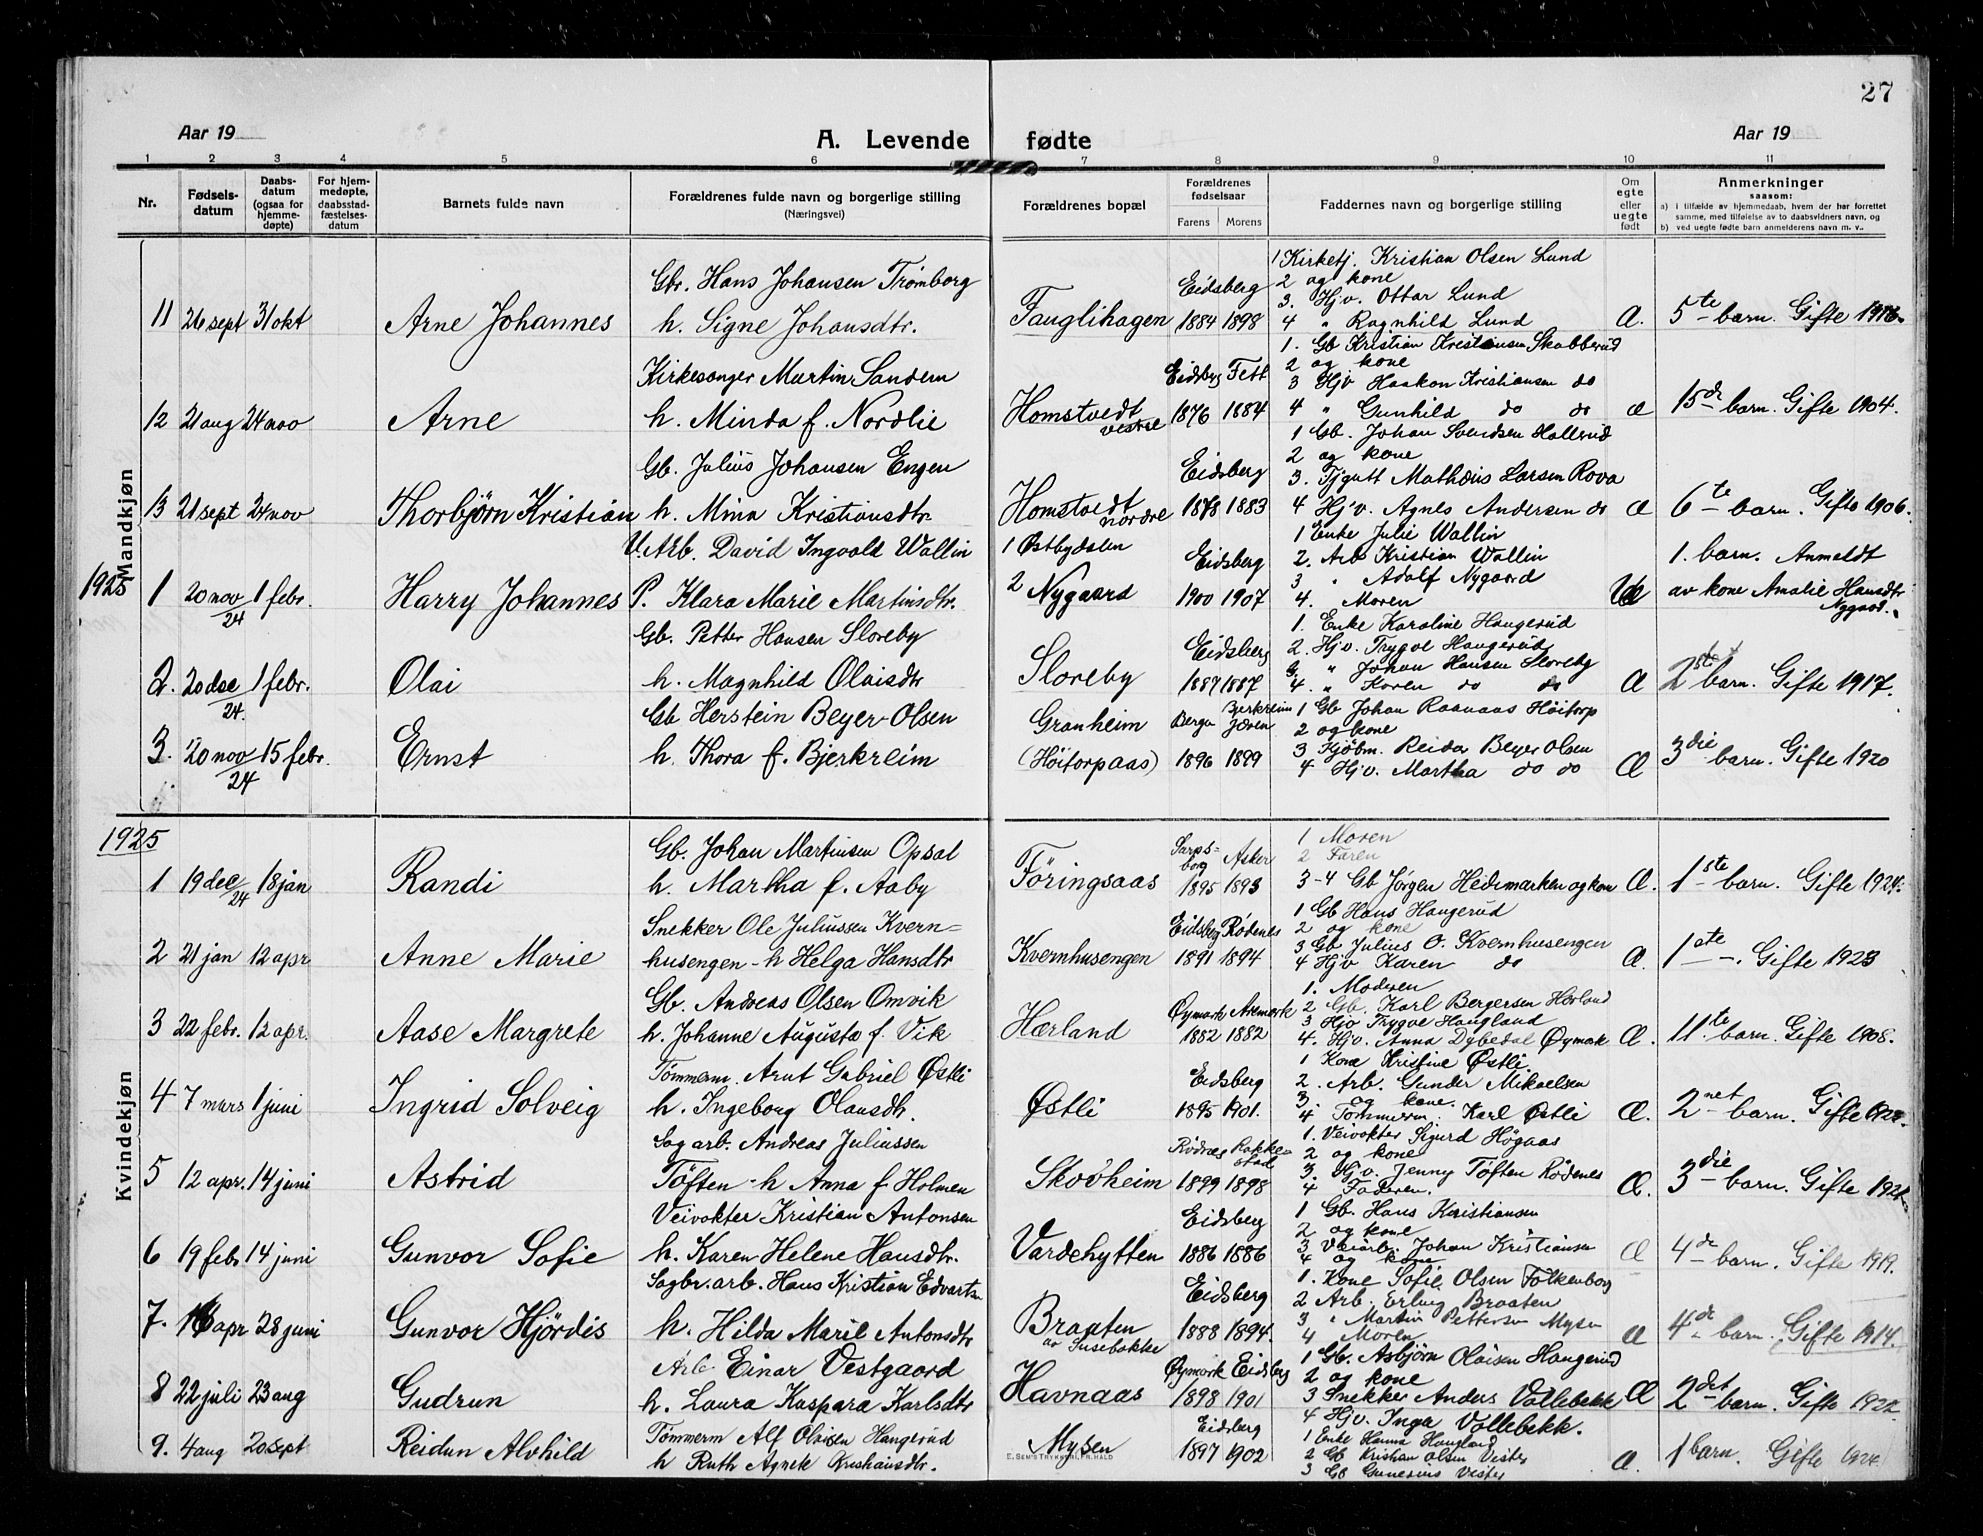 27
Aar 19
A. Levende fødte
Aar 19
1 2 3 4 5 6 7 8 9 10 11
Nr.
Fødsels-datum
Daabs-datum (ogsaa for hjemme-døpte)
For hjem-medøpte, daabsstad-fæstelses-datum
Barnets fulde navn
Forældrenes fulde navn og borgerlige stilling
(Næringsvei)
Forældrenes bopæl
Forældrenes fødselsaar
Farens Morens
Faddernes navn og borgerlige stilling
Om egte eller uegte født
Anmerkninger
saasom:
a) i tilfælde av hjemmedaab, hvem der har forrettet samme, med tilføielse av to daabsvidners navn, og
b) ved uegte fødte barn anmelderens navn m. v..
Mandkjøn
Gbr. Hans Johansen Trømborg
11 26 sept 31 okt Arne Johannes h. Signe Johansdtr.
Fauglihagen Eidsberg 1884 1898
1 Kirketj. Kristian Olsen Lund
2 og kone
3. Hjv. Ottar Lund
4 " Ragnhild Lund
Æ. 5te barn. Gifte 1916.
Kirkesanger Martin Sandem
12 21 aug 24 nov Arne h. Minda f. Nordlie
Homstvedt vestre Eidsberg Fett 1876 1884
1. Gb Kristian Kristiansen Skabberud
2 og kone
3 Hjv Haakon Kristiansen do
4 " Gunhild do do
Æ 15de barn. Gifte 1904.
Gb. Julius Johansen Engen
13 21 sept 24 nov Thorbjørn Kristian h. Mina Kristiansdtr.
Homstvedt nordre Eidsberg 1878 1883
1 Gb. Johan Svendsen Hallerud
2 og kone
3. Tjgutt Mathæus Larsen Rova
4 Hjv. Agnes Andersen do
Æ 6te barn. Gifte 1906.
U. Arb. David Ingvald Wallin
1925 1 20 nov/24 1 febr. Harry Johannes P. Klara Marie Martinsdtr.
1 Østbydalen
2 Nygaard Eidsberg 1900 1907
1 Enke Julie Wallin
2. Arb Kristian Wallin
3 " Adolf Nygaard
4. Moren
1. barn. Anmeldt
av kone Amalie Hansdtr Nygaard.
Gb. Petter Hansen Sloreby
2. 20 dec/24. 1 febr. Olai h. Magnhild Olaisdtr
Sloreby Eidsberg 1887 1887
1. Enke Karoline Haugerud
2. Hjv. Trygve Haugerud
3. " Johan Hansen Sloreby
4. " Karen do do
Æ 2 barn. Gifte 1917.
Gb Herstein Beyer-Olsen
3. 20 nov/24 15 febr. Ernst h. Thora f. Bjerkreim
Granheim (Høitorpaas) Bergen Bjerkreim Jæren 1896 1899
1 Gb Johan Raanaas Høitorp
2 og kone
3 Kjøbm. Reidar Beyer Olsen
4 Hjv. Martha do do
Æ 3die barn. Gifte 1920
1925
Kvindekjøn
Gb. Johan Martinsen Opsal
1 19 dec/24 18 jan Randi h. Martha f. Aaby
Föringsaas Sarpsborg Asker 1895 1893
1 Moren
2 Faren
3-4 Gb Jørgen Hedemarken og kone
Æ. 1ste barn. Gifte 1924.
Snekker Ole Juliussen Kvern=
2 21 jan 12 apr Anne Marie husengen - h Helga Hansdtr
Kvernhusengen Eidsberg Rødenes 1891 1894
1 Gb Hans Haugerud
2 og kone
3 Gb Julius O. Kvernhusengen
4 Hjv Karen do
Æ. 1ste -. Gifte 1923
Gb. Andreas Olsen Omvik
3 22 febr. 12 apr. Aase Margrete h. Johanne Augusta f. Vik
Hærland Øymark Aremark 1882 1882
1. Moderen
2 Gb. Karl Bergersen Hærland
3 Hjv Trygve Haugland
4. Hjv. Anna Dybedal Øymark
Æ. 11te barn. Gifte 1908.
Tømmerm. Arnt Gabriel Østli
4 7 mars 1 juni Ingrid Solveig h. Ingeborg Olausdtr.
Østli Eidsberg 1895 1901.
1 Kone Kristine Østli
2. Arb. Gunder Mikaelsen
3 og kone.
4 Tømmerm. Karl Østli
Æ. 2net barn. Gifte
Sagarb. Andreas Juliussen
5 12 apr. 14 juni Astrid Töften - h Anna f. Holmen
Skovheim Rødnes Rakkestad 1899 1898
1. Veivokter Sigurd Högaas
2 og kone
3. Hjv. Jenny Töften Rödenes
4 Faderen.
Æ. 3die barn. Gifte
Veivokter Kristian Antonsen
6 19 febr 14 juni Gunvor Sofie h. Karen Helene Hansdtr.
Vardehytten Eidsberg 1886 1886
1 Gb. Hans Kristiansen
2 og kone
3 Veiarb. Johan Kristiansen
4 og kone
Æ 4de barn. Gifte 1919.
Sagbr.arb. Hans Kristian Edvartsen
7. 16 apr 28 juni Gunvor Hjördis h. Hilda Marie Antonsdtr
Braaten av Susebakke Eidsberg 1888 1894.
1. Kone Sofie Olsen Folkenborg
2 Arb. Erling Braaten
3 " Martin Pettersen Mysen
4 Moren
Æ 4de barn. Gifte 1914.
Arb Einar Vestgaard
8 22 juli 23 aug Gudrun h. Laura Kaspara Karlsdtr
Havnaas Øymark Eidsberg 1898 1901
1 Gb. Asbjørn Olaisen Haugerud
2 og kone
3 Snekker Anders Vollebekk
4 Hjv. Inga Vollebekk.
Æ 2det barn. Gifte 1922.
Tømmerm Alf Olaisen Haugerud
9. 4 aug 20 sept Reidun Alvhild h Ruth Agnete Kristiansdtr.
Mysen Eidsberg 1897 1902
1 Enke Hanna Haugland
2 Gb Kristian Olsen Vister
3 Gb Gunerius Vister
Æ. 1 barn. Gifte 1924
E. SEM'S TRYKKERI, FR.HALD